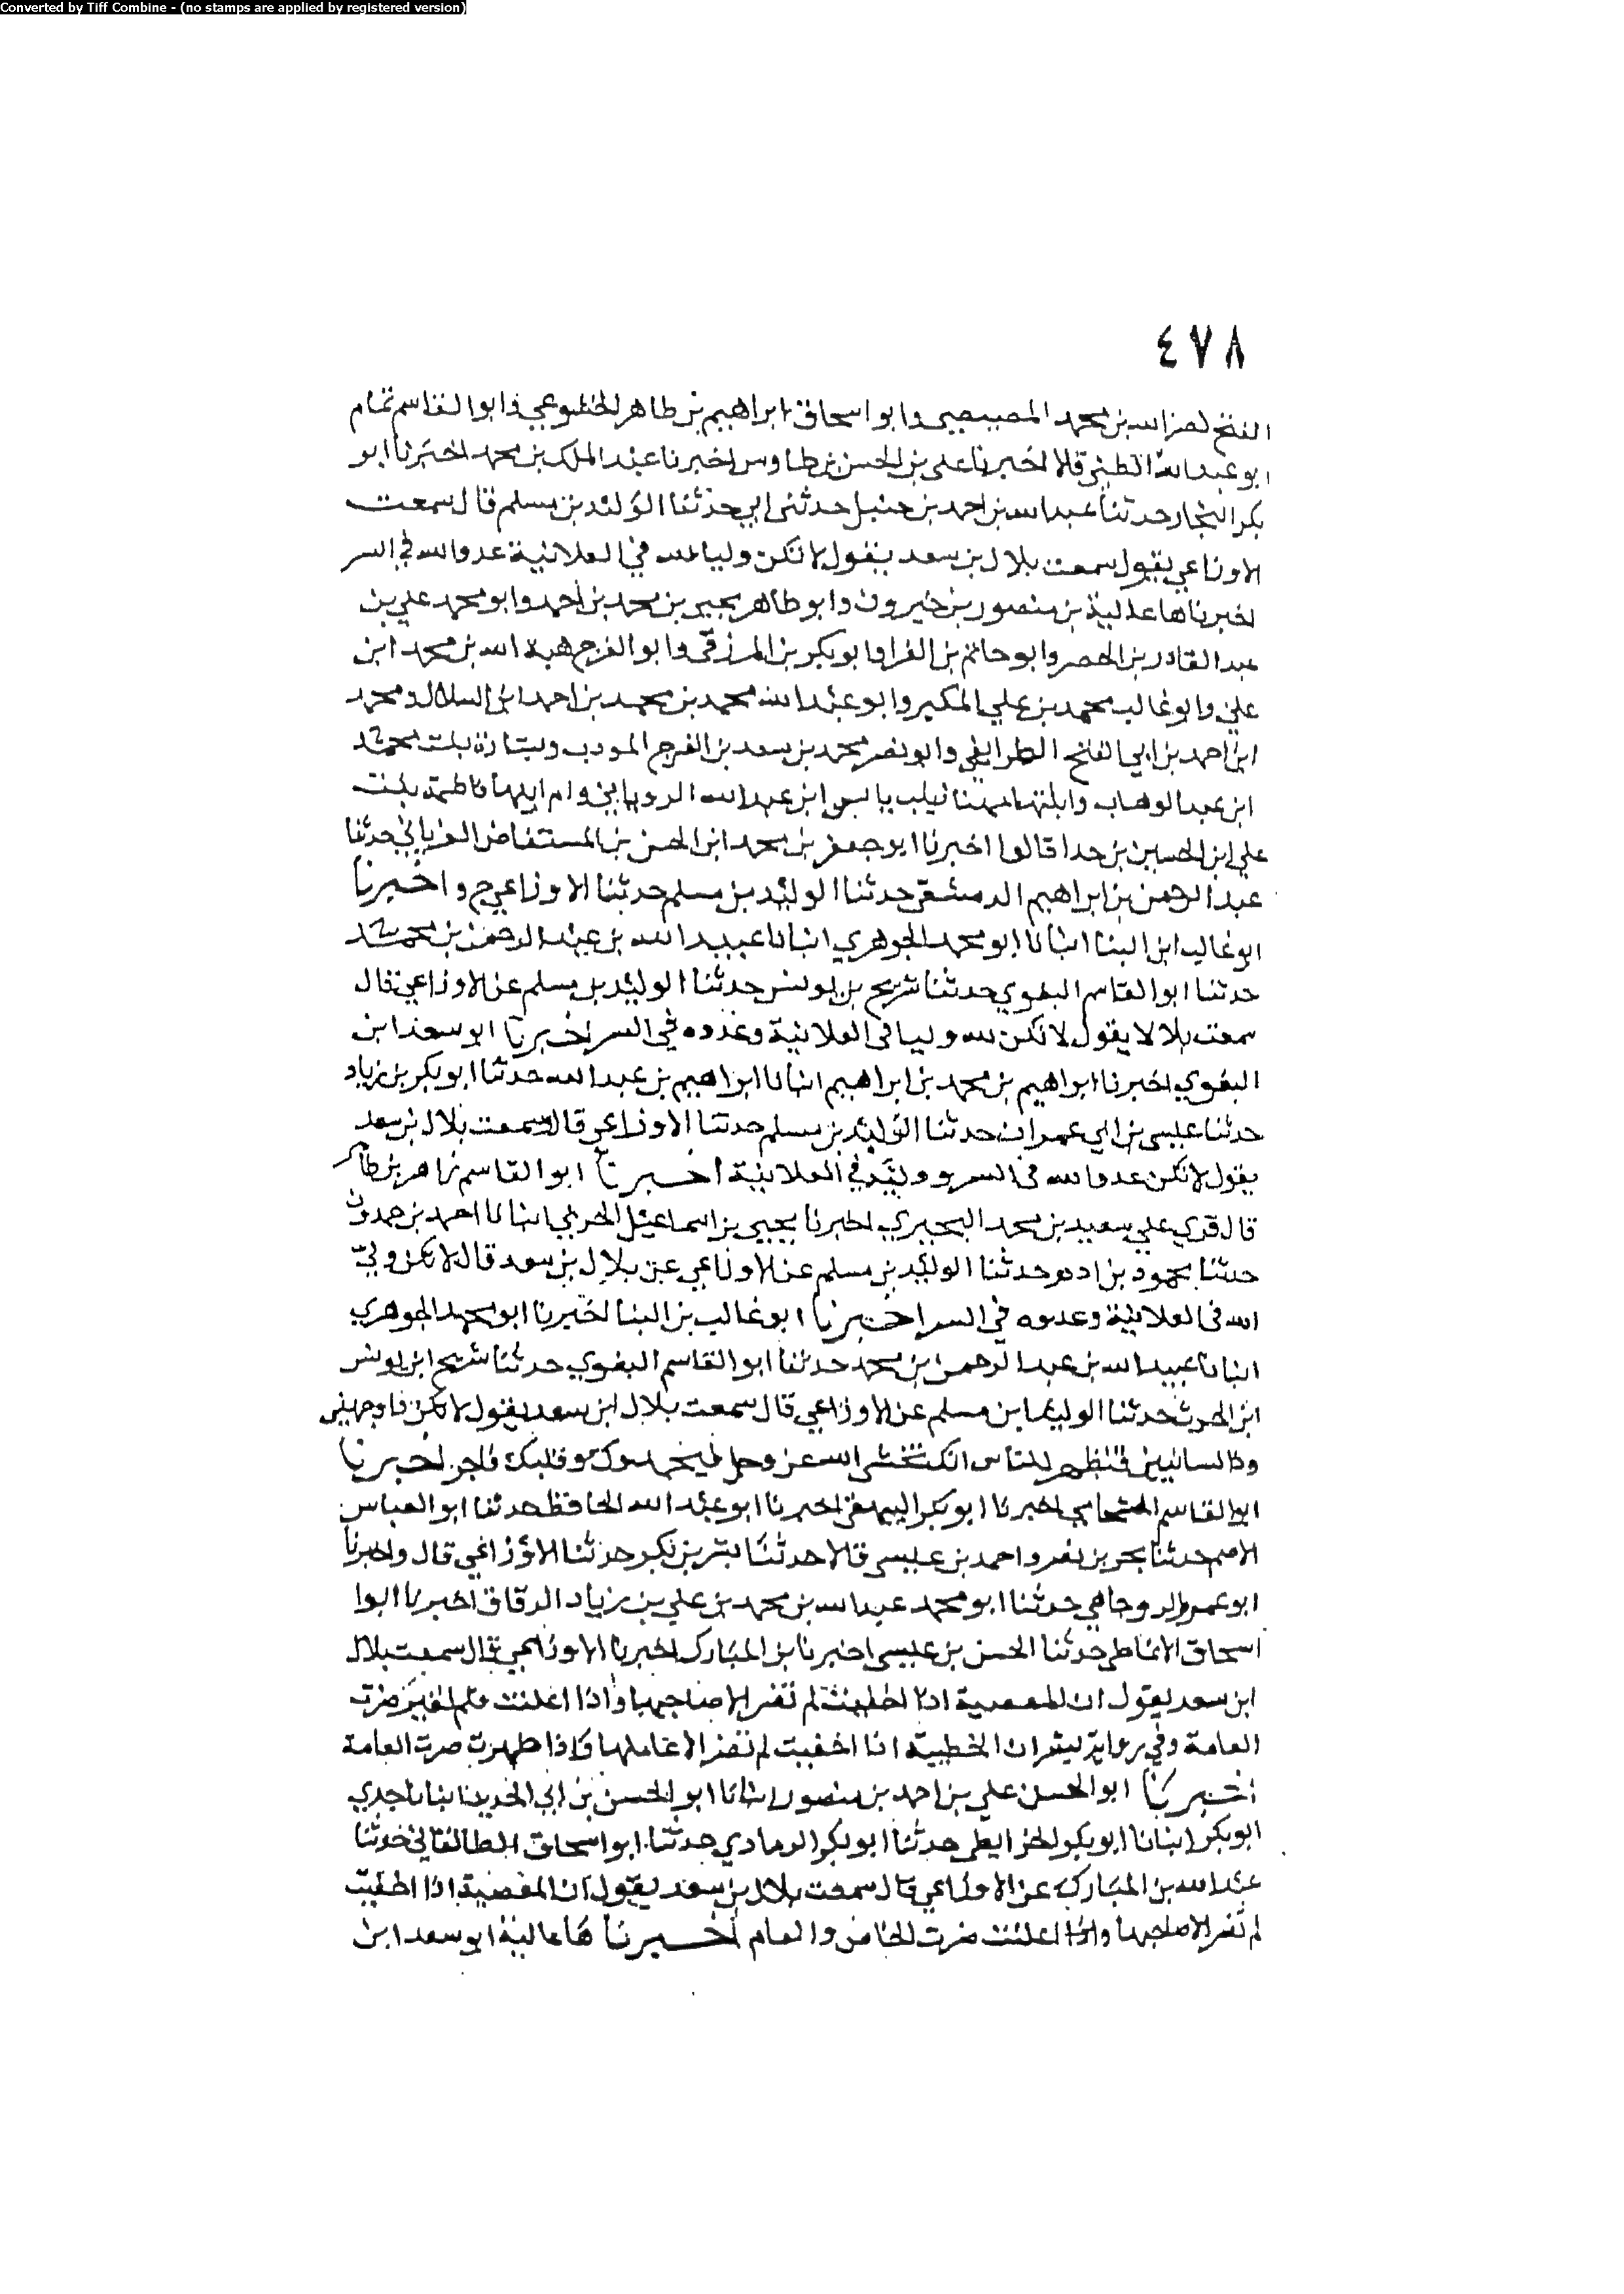 Converted by Tiff Combine - (no stamps are applied by registered version)
٤٧٨
الفتح نصر الله بن محمد المصيصي وابو اسحاق ابراهيم بن طاهر الخشوعي وابو القاسم تمام
ابو عبد الله قالا اخبرنا علي بن الحسن بن طاوس اخبرنا عبد الملك بن محمد اخبرنا ابو
بكر النجار حدثنا عبد الله بن احمد بن حنبل حدثني ابي حدثنا الوليد بن مسلم قال سمعت
الاوزاعي يقول سمعت بلال بن سعد يقول لا تكن وليا لله في العلانية عدوا لله في السر
اخبرناها عالية بن منصور بن خيرون وابو طاهر يحيى بن محمد بن احمد وابو محمد علي بن
عبد القادر بن الحصر وابو حاتم بن الفرا وابو بكر بن المزرقي وابو الفرج هبة الله بن محمد ابن
علي وابو غالب محمد بن علي المكبر وابو عبد الله محمد بن محمد بن احمد ابن السلال ومحمد
ابن احمد بن ابي الفتح الطرايفي وابو نصر محمد بن سعد بن الفرج المودب وستارة بنت محمد
ابن عبد الوهاب وابنتها ابن عبد الله الروياني وام ابيها فاطمة بنت
علي ابن الحسين بن جدا قالوا اخبرنا ابو جعفر بن محمد ابن الحسن بن المستفاض الفريابي حدثنا
عبد الرحمن بن ابراهيم الدمشقي حدثنا الوليد بن مسلم حدثنا الاوزاعي ح واخبرنا
ابو غالب ابن البنا انبانا ابو محمد الجوهري انبانا عبيد الله بن عبد الرحمن بن محمد
حدثنا ابو القاسم البغوي حدثنا شريح بن يونس حدثنا الوليد بن مسلم عن الاوزاعي قال
سمعت بلالا يقول لا تكن لله وليا في العلانية وعدوه في السر اخبرنا ابو سعد ابن
البغوي اخبرنا ابراهيم بن محمد بن ابراهيم انبانا ابراهيم بن عبد الله حدثنا ابو بكر بن زياد
حدثنا عيسى بن ابي عمران حدثنا الوليد بن مسلم حدثنا الاوزاعي قال سمعت بلال بن سعد
يقول لا تكن عدوا لله في السر ووليه في العلانية اخبرنا ابو القاسم زاهر بن طاهر
قال قرئ علي سعيد بن محمد البحيري اخبرنا يحيى بن اسماعيل الحربي انبانا احمد بن حمدون
حدثنا محمود بن ادم حدثنا الوليد بن مسلم عن الاوزاعي عن بلال بن سعد قال لا تكن ولي
الله في العلانية وعدوه في السر اخبرنا ابو غالب بن البنا اخبرنا ابو محمد الجوهري
انبانا عبيد الله بن عبد الرحمن ابن محمد حدثنا ابو القاسم البغوي حدثنا شريح ابن يونس
ابن الحرث حدثنا الوليد ابن مسلم عن الاوزاعي قال سمعت بلال ابن سعد يقول لا تكن ذا وجهين
وذا لسانين فتظهر للناس انك تخشى الله عز وجل ليحمدوك وقلبك فاجر اخبرنا
ابو القاسم الشحامي اخبرنا ابو بكر البيهقي اخبرنا ابو عبد الله الحافظ حدثنا ابو العباس
الاصم حدثنا بحر بن نصر واحمد بن عيسى قالا حدثنا بشر بن بكر حدثنا الاوزاعي قال واخبرنا
ابو عمرو حدثنا ابو محمد عبد الله بن محمد بن علي بن زياد الدقاق اخبرنا ابوا
اسحاق الانماطي حدثنا الحسن بن عيسى اخبرنا بن المبارك اخبرنا الاوزاعي قال سمعت بلال
ابن سعد يقول ان المعصية اذا اخفيت لم تضر الا صاحبها واذا اعلنت فلم تغير ضرت
العامة وفي رواية بشر ان الخطيئة اذا اخفيت لم تضر الا عاملها فاذا ظهرت ضرت العامة
اخبرنا ابو الحسن علي بن احمد بن منصور انبانا ابو الحسن بن ابي الحديد انبانا جدي
ابو بكر انبانا ابو بكر الخرايطي حدثنا ابو بكر الرمادي حدثنا ابو اسحاق الطالقاني حدثنا
عبد الله بن المبارك عن الاوزاعي قال سمعت بلال بن سعد يقول ان المعصية اذا اخفيت
لم تضر الا صاحبها واذا اعلنت ضرت الخاص والعام اخبرنا ها عالية ابو سعد ابن